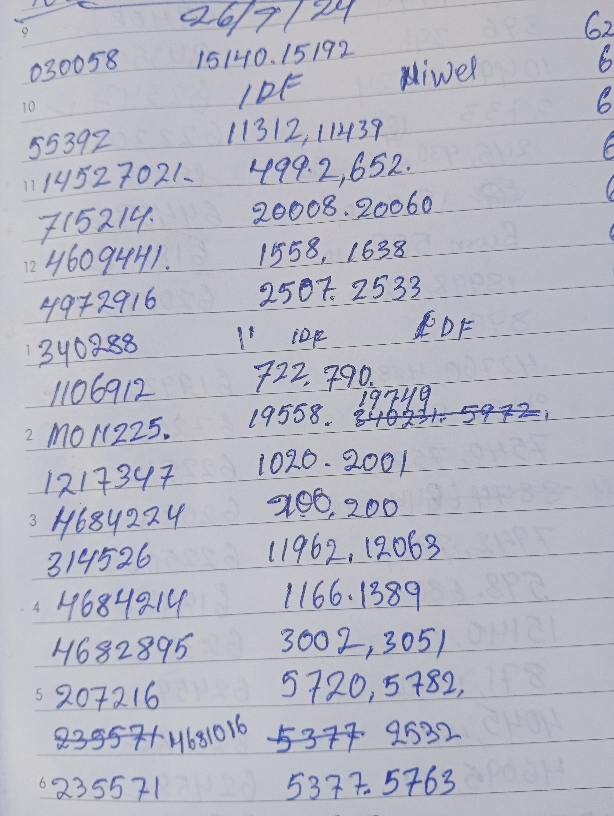 26/7/24
9
030058 15140.15192 62
10 IDF Niwel 6
55392 11312,11439 6
11 14527021- 499.2,652. 6
715214. 20008.20060 6
12 4609441. 1558, 1638 6
4972916 2507. 2533
1 340288 11 IDF IDF
1106912 722. 790.
19749
2 MON225. 19558. 340231. 5972,
1217347 1020. 2001
3 4684224 200, 200
314526 11962, 12063
4 4684214 1166.1389
4682895 3002,3051
5 207216 5720,5782,
235571 4681016 5377 2532
6 235571 5377. 5763